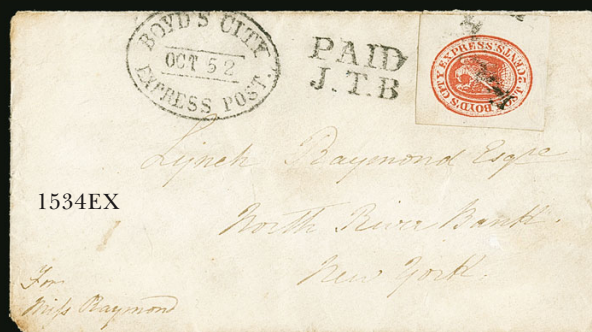 BOYD'S CITY
OCT 52
EXPRESS POST.
PAID
J.T.B
BOYD'S CITY EXPRESS. 2 CENTS. J.T.B.
Lynch Raymond Esqre
North River Bank.
New York.
1534EX
For
Miss Raymond